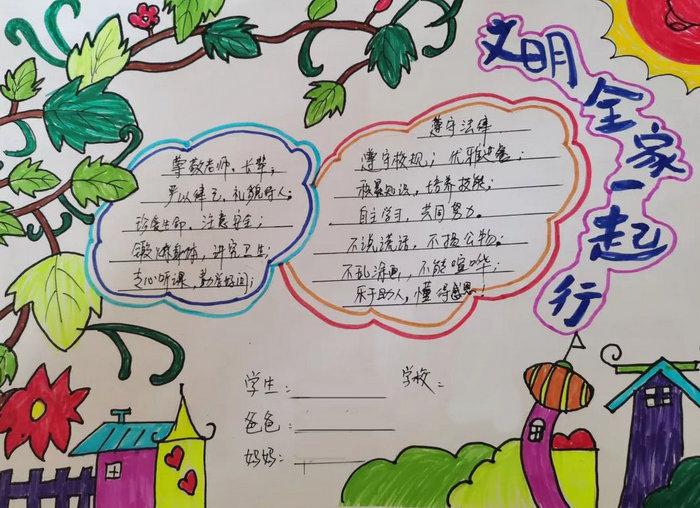 文明全家一起行
尊敬老师、长辈;
严以律己、礼貌待人。
珍爱生命、注意安全;
锻炼身体,讲究卫生;
专心听课,勤学好问;
遵守法律
遵守校规;优雅
积累知识,培养技能;
自主学习,共同努力。
不说谎话,不损公物;
不乱涂画,不能喧哗;
乐于助人,懂得感恩;
学生:
学校:
爸爸:
妈妈: